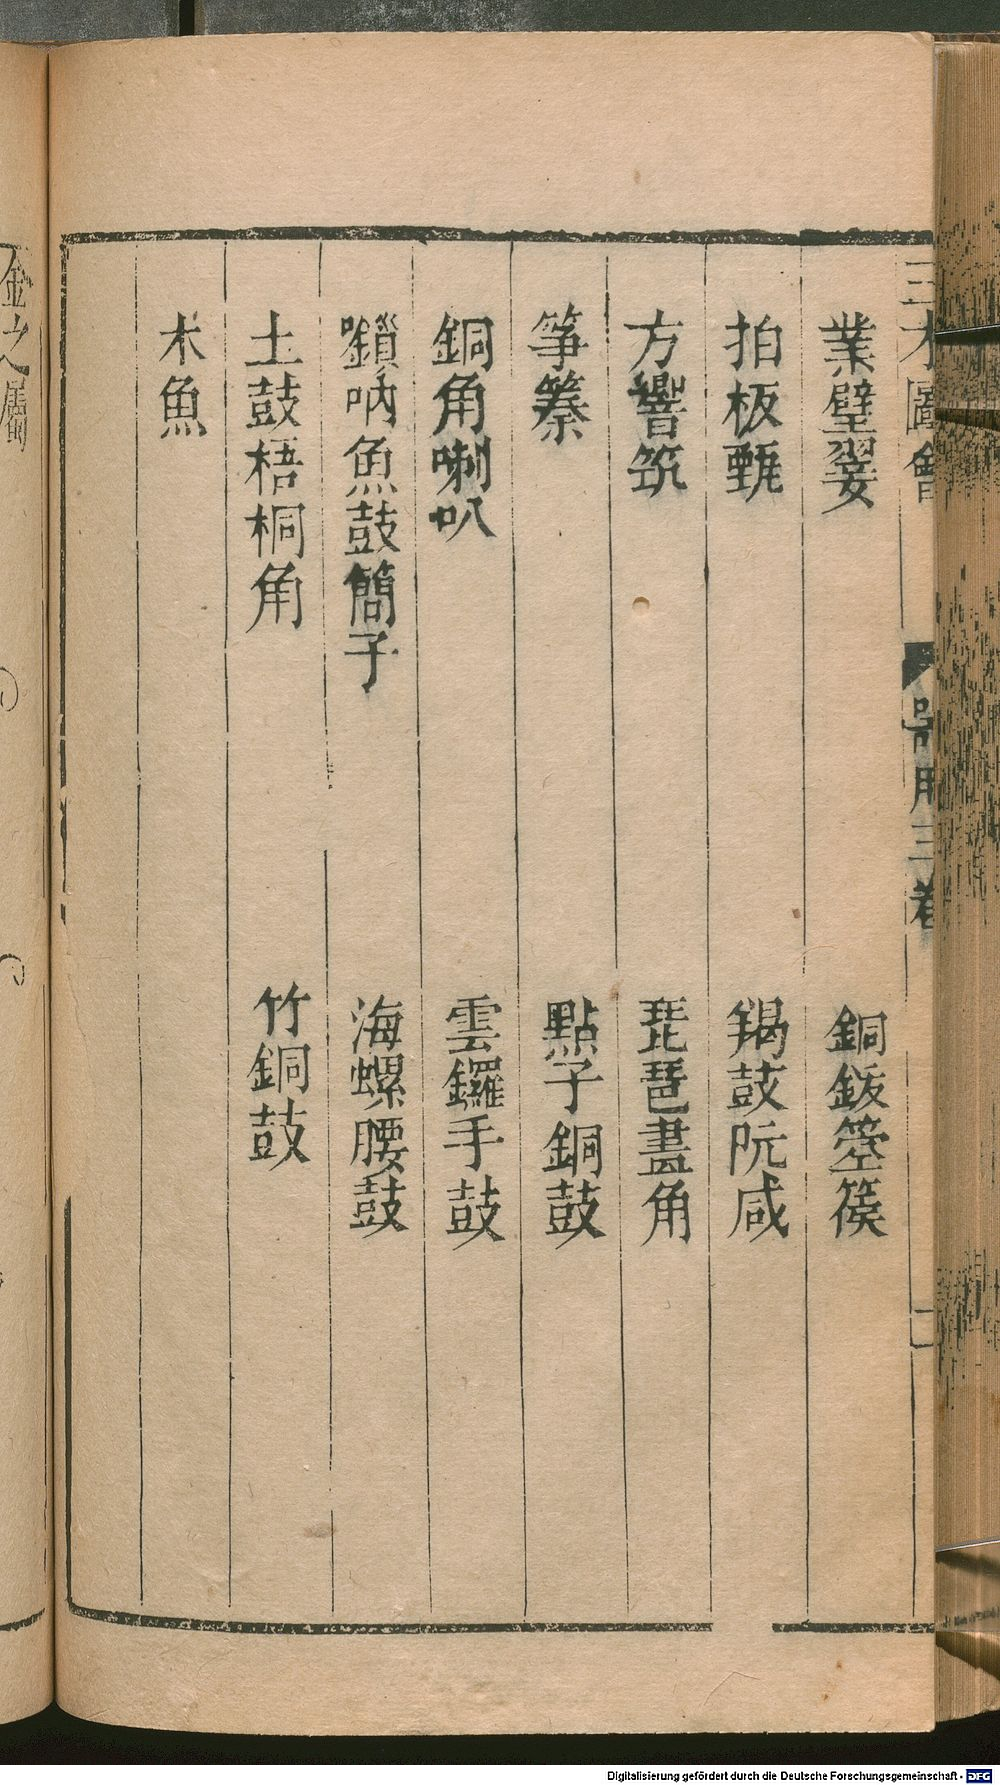 三才圖會
器用三卷
二
業璧翣
銅鈸箜篌
拍板甄
羯鼓阮咸
方響筑
琵琶畫角
箏𥱧
點子銅鼓
銅角喇叭
雲鑼手鼓
鎖吶魚鼓簡子
海螺腰鼓
土鼓梧桐角
竹銅鼓
木魚
金之屬
Digitalisierung gefördert durch die Deutsche Forschungsgemeinschaft - DFG